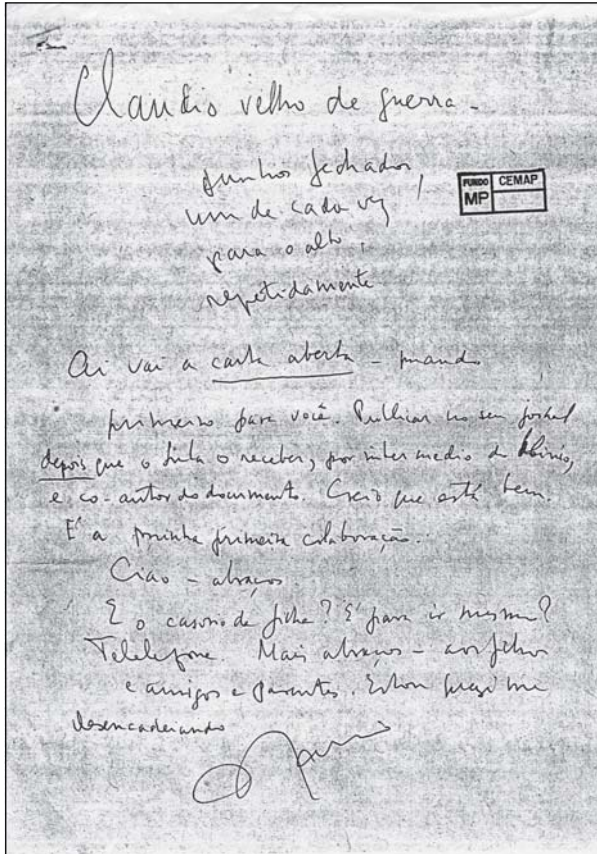 Claudio velho de guerra -
punhos fechados,
um de cada vez
para o alto,
repetidamente
FUNDO
MP
CEMAP
Ai vai a carta aberta - mando
primeiro para você. Publicar no seu jornal
depois que o Lula o receber, por intermedio de
e co-autor do documento. Creio que está bem.
É a minha primeira colaboração.
Ciao - abraços.
E o casorio de filha? É para ir mesmo?
Telefone. Mais abraços - aos filhos
e amigos e parentes. Estou quasi me
desencadeiando